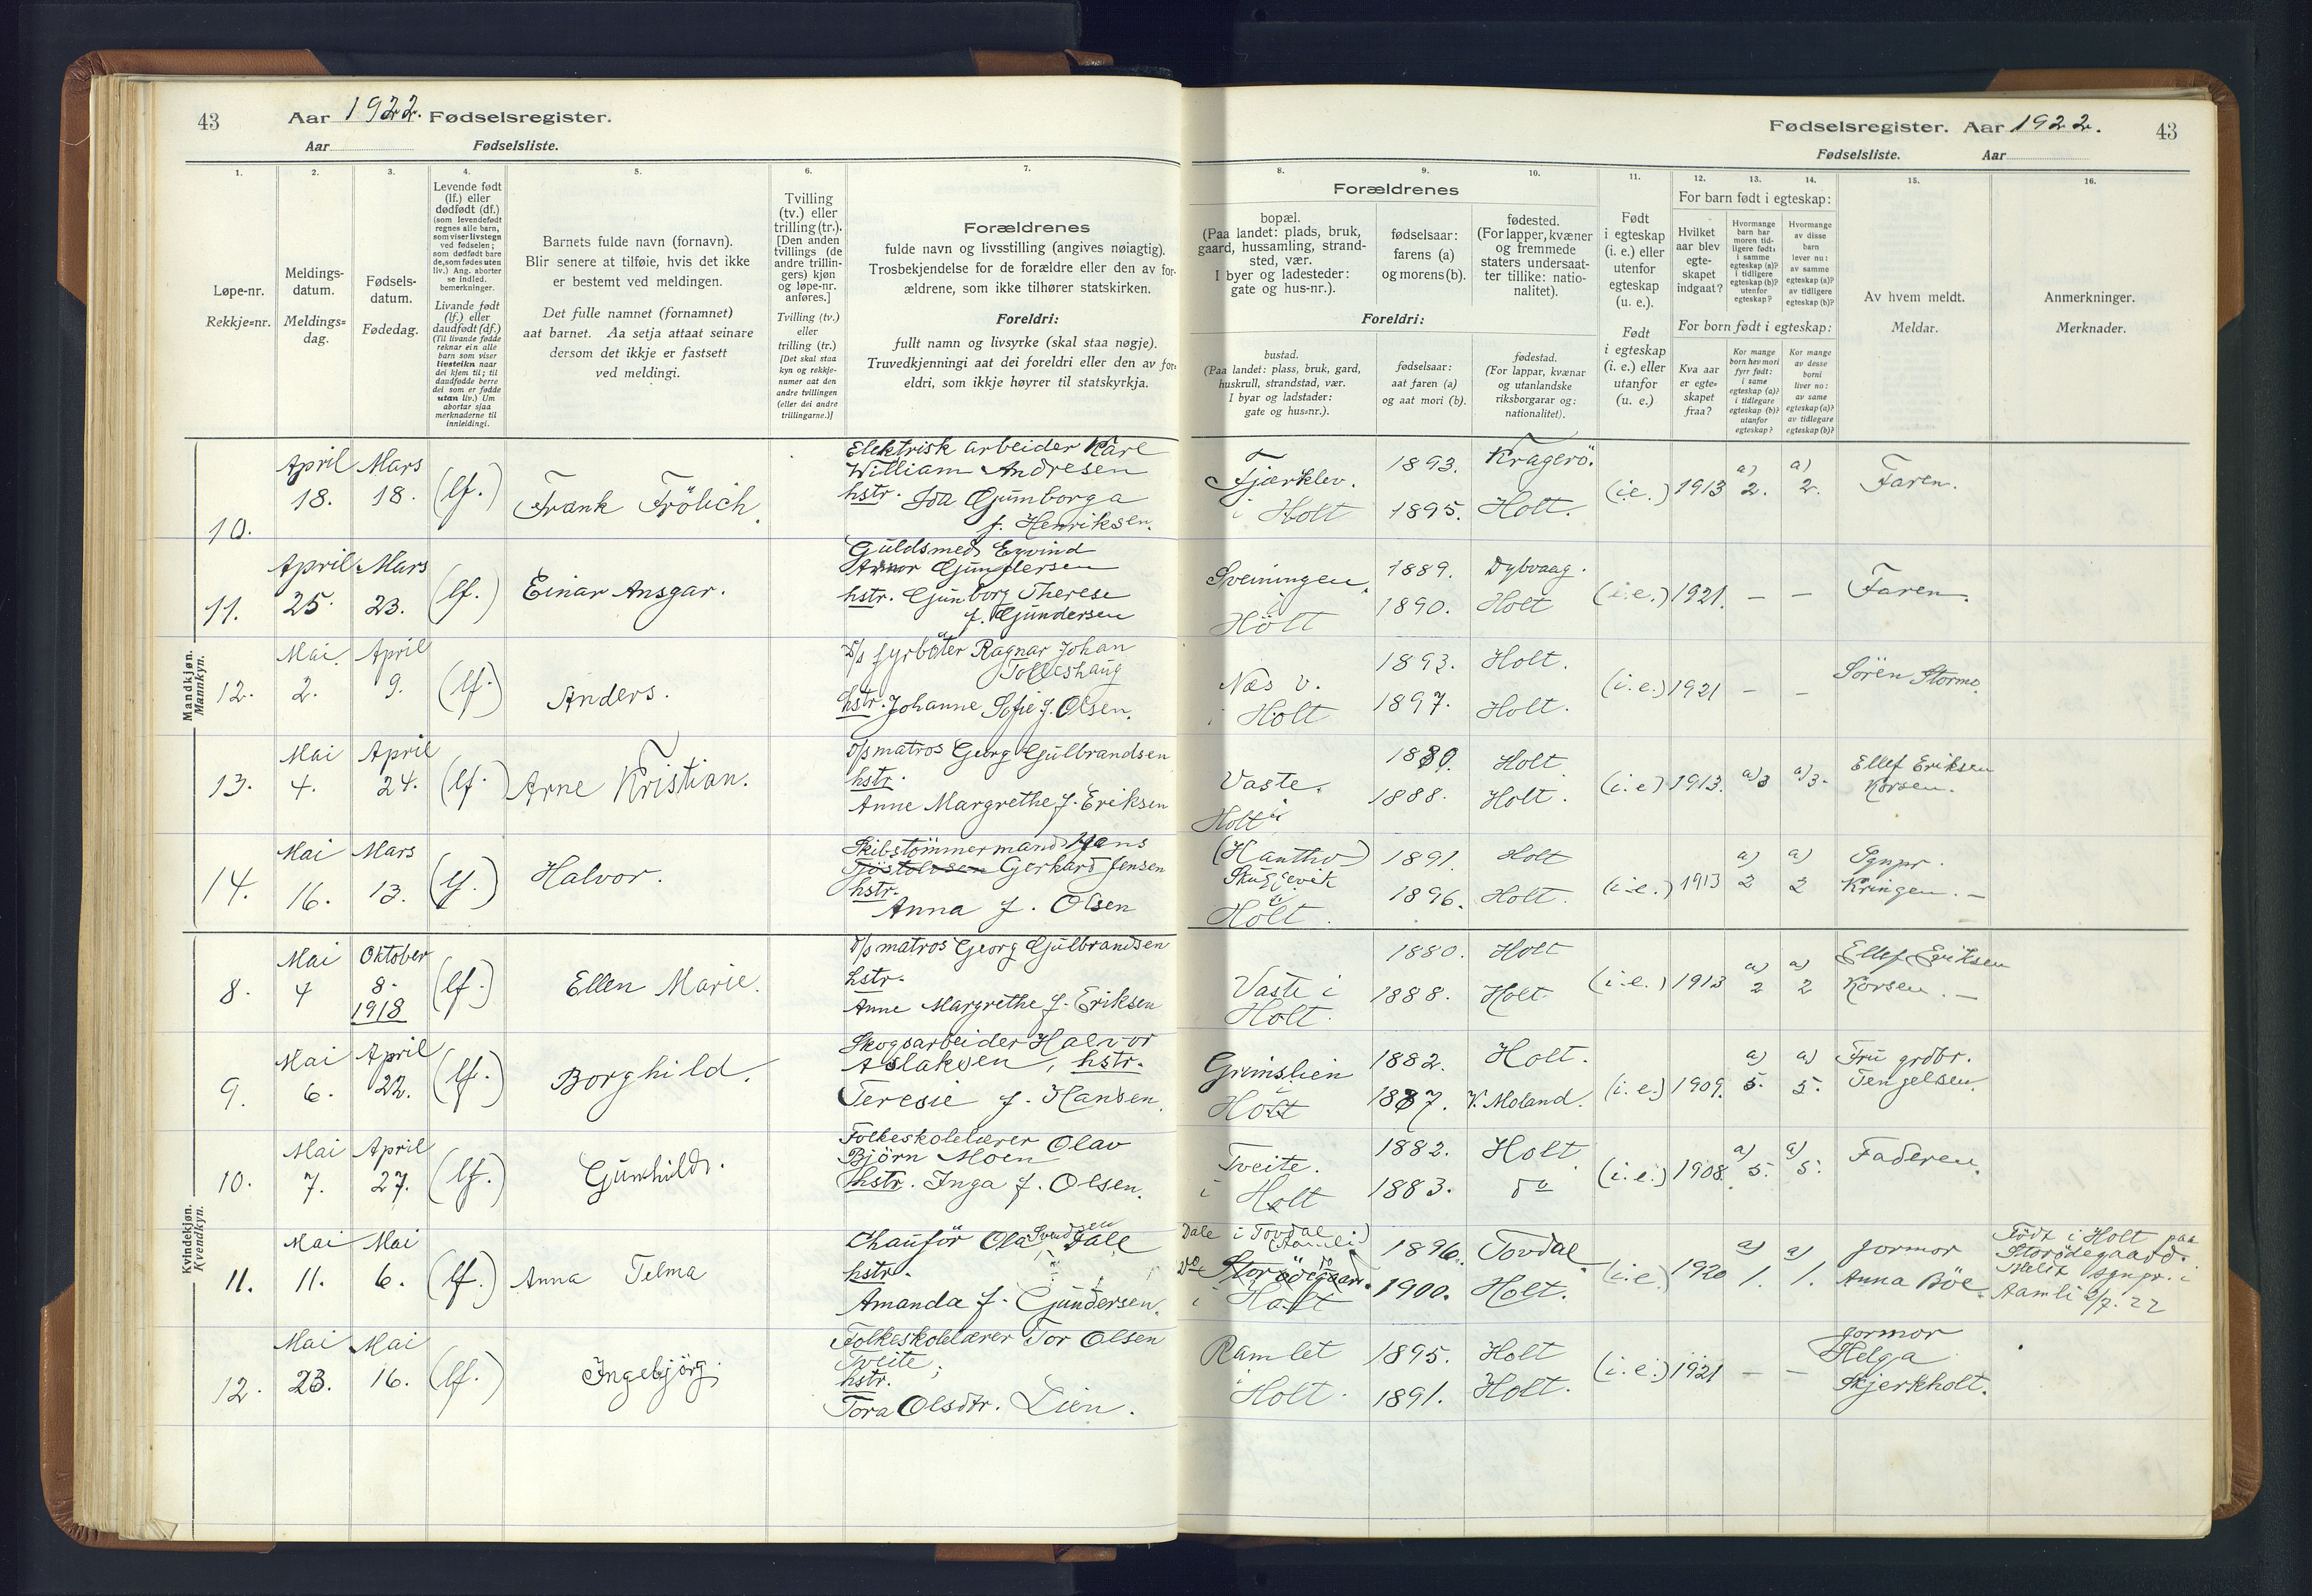 43
Aar 1922. Fødselsregister.
Aar Fødselsliste.
1.
2.
3.
4.
5.
6.
7.
Løpe-nr.
Rekkje=nr.
Meldings-
datum.
Meldings=
dag.
Fødsels-
datum.
Fødedag.
Levende født
(lf.) eller
dødfødt (df.)
(som levendefødt
regnes alle barn,
som viser livstegn
ved fødselen;
som dødfødt bare
de, som fødes uten
liv.) Ang. aborter
se indled.
bemerkninger.
Livande født
(lf.) eller
daudfødt (df.)
(Til livande fødde
reknar ein alle
barn som viser
livsteikn naar
dei kjem til; til
daudfødde berre
dei som er fødde
utan liv.) Um
abortar sjaa
merknaderne til
innleidingi.
Barnets fulde navn (fornavn).
Blir senere at tilføie, hvis det ikke
er bestemt ved meldingen.
Det fulle namnet (fornamnet)
aat barnet. Aa setja attaat seinare
dersom det ikkje er fastsett
ved meldingi.
Tvilling
(tv.) eller
trilling (tr.).
[Den anden
tvillings (de
andre trillin-
gers) kjøn
og løpe-nr.
anføres.]
Tvilling (tv.)
eller
trilling (tr.)
[Det skal staa
kyn og rekkje-
numer aat den
andre tvillingen
(eller dei andre
trillingarne.)]
Forældrenes
fulde navn og livsstilling (angives nøiagtig).
Trosbekjendelse for de forældre eller den av for-
ældrene, som ikke tilhører statskirken.
Foreldri:
fullt namn og livsyrke (skal staa nøgje).
Truvedkjenningi aat dei foreldri eller den av for-
eldri, som ikkje høyrer til statskyrkja.
Mandkjøn.
Mannkyn.
10.
April
18.
Mars
18.
(lf.)
Frank Frölich.
Elektrisk arbeider Karl
William Andresen
hstr. Ida Gunborga
f. Henriksen.
11.
April
25.
Mars
23.
(lf.)
Einar Ansgar.
Guldsmed Eyvind
Gundersen
hstr. Gunborg Therese
f. Gundersen
12.
Mai
2.
April
9.
(lf.)
Anders.
D/s fyrböter Ragnar Johan
Tolleshaug
hstr. Johanne Sofie f. Olsen.
13.
Mai
4.
April
24.
(lf.)
Arne Kristian.
D/s matros Georg Gulbrandsen
hstr.
Anne Margrethe f. Eriksen
14.
Mai
16.
Mars
13.
(lf.)
Halvor.
Skibstömmermand Hans
Tjöstolvsen Gerhard Jensen
hstr.
Anna f. Olsen
Kvindekjøn.
Kvendkyn.
8.
Mai
4
Oktober
8.
1918
(lf.)
Ellen Marie.
D/s matros Georg Gulbrandsen
hstr.
Anne Margrethe f. Eriksen
9.
Mai
6.
April
22.
(lf.)
Borghild.
Skogsarbeider Halvor
Aslaksen, hstr.
Teresie f. Hansen.
10.
Mai
7.
April
27.
(lf.)
Gunhild.
Folkeskolelærer Olav
Björn Moen
hstr. Inga f. Olsen.
11.
Mai
11.
Mai
6.
(lf.)
Anna Telma
Chauför Ola Svendsen Dale
hstr.
Amanda f. Gundersen.
12.
Mai
23.
Mai
16.
(lf.)
Ingebjörg.
Folkeskolelærer Tor Olsen
Tveite;
hstr.
Tora Olsdtr. Lien.
Fødselsregister. Aar 1922.
43
Fødselsliste. Aar
8.
9.
10.
11.
12.
13.
14.
15.
16.
Forældrenes
bopæl.
(Paa landet: plads, bruk,
gaard, hussamling, strand-
sted, vær.
I byer og ladesteder:
gate og hus-nr.).
fødselsaar:
farens (a)
og morens (b).
fødested.
(For lapper, kvæner
og fremmede
staters undersaat-
ter tillike: natio-
nalitet).
Foreldri:
bustad.
(Paa landet: plass, bruk, gard,
huskrull, strandstad, vær.
I byar og ladstader:
gate og hus=nr.).
fødselsaar:
aat faren (a)
og aat mori (b).
fødestad.
(For lappar, kvænar
og utanlandske
riksborgarar og:
nationalitet).
Født
i egteskap
(i. e.) eller
utenfor
egteskap
(u. e.).
Født
i egteskap
(i. e.) eller
utanfor
(u. e.)
For barn født i egteskap:
Hvilket
aar blev
egte-
skapet
indgaat?
Hvormange
barn har
moren tid-
ligere født:
i samme
egteskap (a)?
i tidligere
egteskap (b)?
utenfor
egteskap?
Hvormange
av disse
barn
lever nu:
av samme
egteskap (a)?
av tidligere
egteskap (b)?
For born født i egteskap:
Kva aar
er egte=
skapet
fraa?
Kor mange
born hev mori
fyrr født:
i same
egteskap (a)?
i tidlegare
egteskap (b)?
utanfor
egteskap?
Kor mange
av desse
borni
liver no:
av same
egteskap (a)?
av tidlegare
egteskap (b)?
Av hvem meldt.
Meldar.
Anmerkninger.
Merknader.
Fjærklev.
i Holt
1893.
1895.
Kragerö.
Holt.
(i.e.)
1913
a)
2.
a)
2.
Faren.
Sveiningen,
i
Holt
1889.
1890.
Dybvaag.
Holt
(i.e.)
1921.
–
–
Faren.
Næs v.
i Holt
1893.
1897.
Holt.
Holt.
(i.e.)
1921
–
–
Sören Stormo.
Vaste.
Holt i
1880.
1888.
Holt
Holt.
(i.e)
1913.
a) 3
a) 3.
Ellef Eriksen
Korsen.
(Hantho)
Skuggevik
i
Holt.
1891.
1896.
Holt
Holt.
(i.e.)
1913
a)
2
a)
2
Sgnpr.
Kringen. –
Vaste i
Holt.
1880.
1888.
Holt
Holt.
(i.e.)
1913
a)
2
a)
2
Ellef Eriksen
Korsen. –
Grimslien
i
Holt
1882.
1887.
Holt.
V. Moland.
(i.e.)
1909.
a)
5.
a)
5.
Fru grdbr.
Tengelsen.
Tveite.
i Holt
1882.
1883.
Holt
do
(i.e.)
1908.
a)
5.
a)
5.
Faderen.
Dale i Tovdal
(Aamli)
do Storödegaard.
i Holt
1896.
1900.
Tovdal.
Holt.
(i.e.)
1920
a)
1.
a)
1.
Jormor
Anna Böe.
Födt i Holt paa
Storödegaard.
Meldt sgnpr. i
Aamli 2/7. 22
Ramlet
i
Holt.
1895.
1891.
Holt
Holt.
(i.e.)
1921
–
–
Jormor
Helga
Skjerkholt.